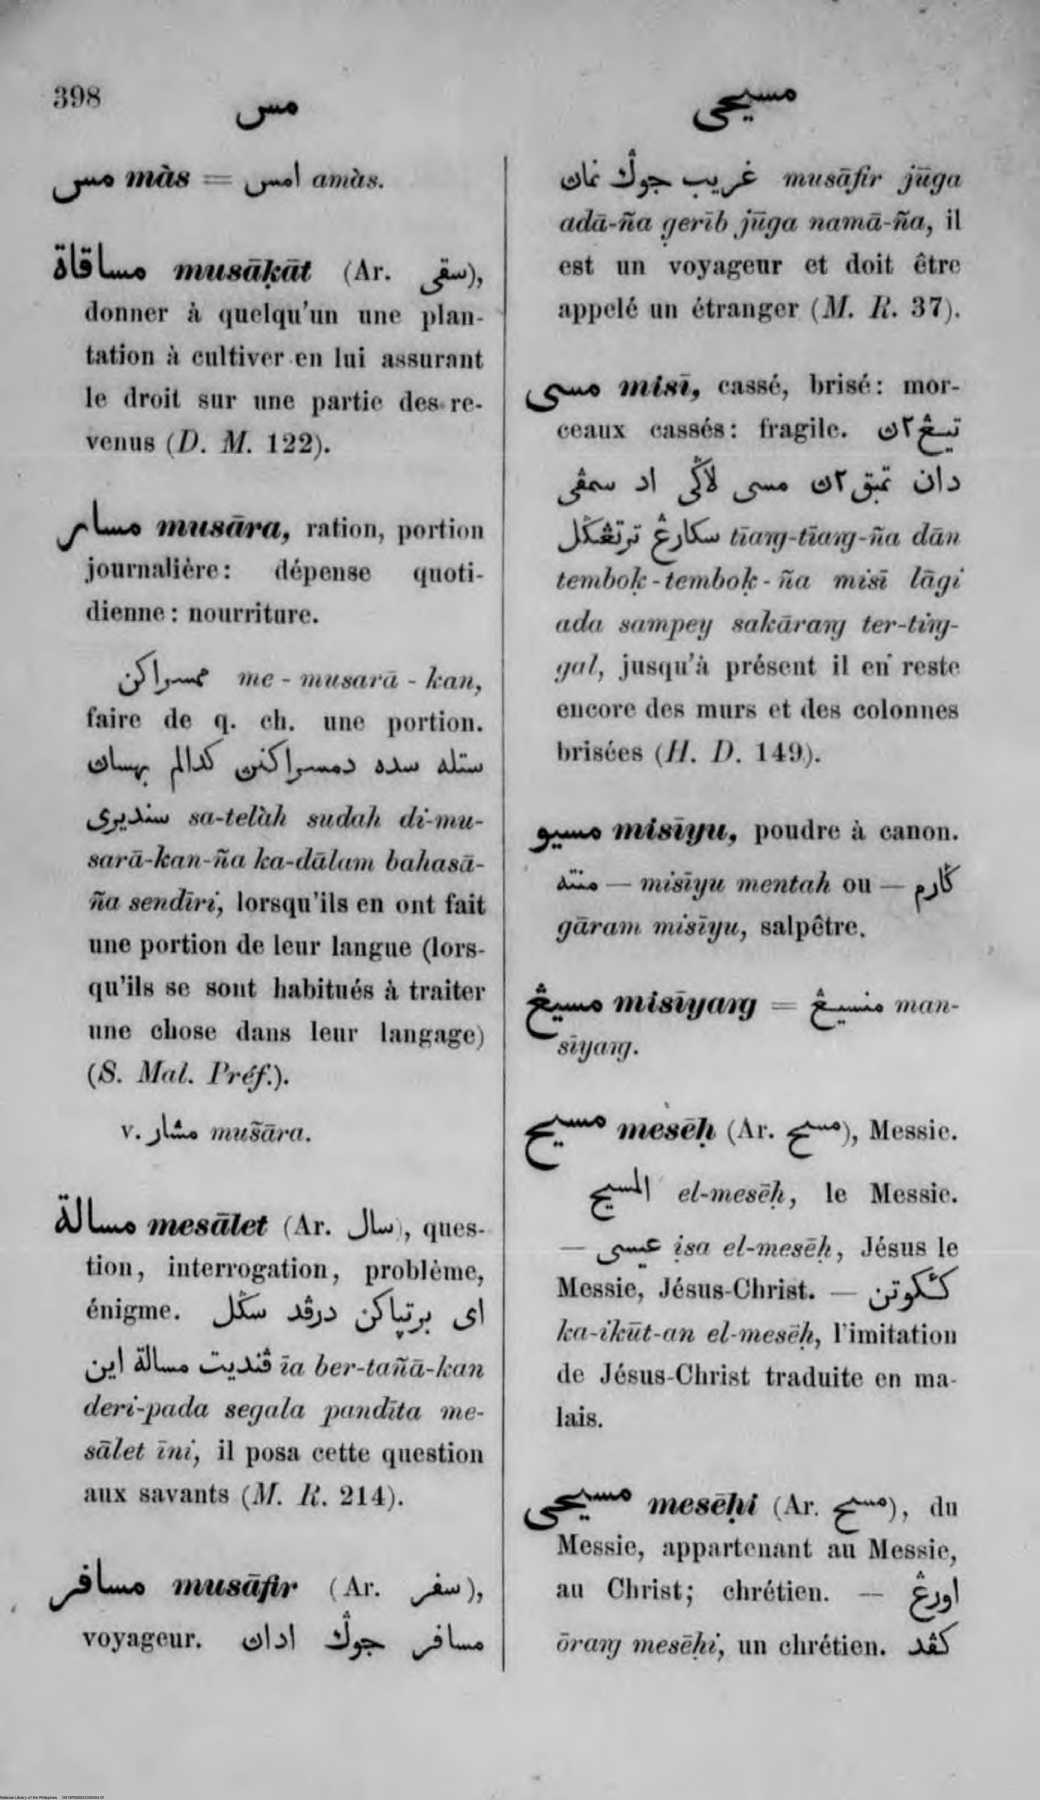 398
مس
مسيحى
مس màs = امس amàs.
مساقاة musāḳāt (Ar. سقى),
donner à quelqu'un une plan-
tation à cultiver en lui assurant
le droit sur une partie des re-
venus (D. M. 122).
مسار musāra, ration, portion
journalière: dépense quoti-
dienne: nourriture.
ممسراكن me-musarā-kan,
faire de q. ch. une portion.
ستله سده دمسراكنڽ كدالم بهساڽ
سنديرى sa-telàh sudah di-mu-
sarā-kan-ña ka-dālam bahasā-
ña sendīri, lorsqu'ils en ont fait
une portion de leur langue (lors-
qu'ils se sont habitués à traiter
une chose dans leur langage)
(S. Mal. Préf.).
v. مشار mus̃āra.
مسالة mesālet (Ar. سال), ques-
tion, interrogation, problème,
énigme. اى برتڽاكن درڤد سݢل
ڤنديت مسالة اين īa ber-tañā-kan
deri-pada segala pandīta me-
sālet īni, il posa cette question
aux savants (M. R. 214).
مسافر musāfir (Ar. سفر),
voyageur. مسافر جوݢ اداڽ
غريب جوݢ نماڽ musāfir jūga
adā-ña ḡerīb jūga namā-ña, il
est un voyageur et doit être
appelé un étranger (M. R. 37).
مسى misī, cassé, brisé: mor-
ceaux cassés: fragile. تيڠ٢ڽ
دان تمبق٢ڽ مسى لاݢى اد سمڤى
سكارڠ ترتڠݢل tīang-tīang-ña dān
temboḳ-temboḳ-ña misī lāgi
ada sampey sakārang ter-ting-
gal, jusqu'à présent il en reste
encore des murs et des colonnes
brisées (H. D. 149).
مسيو misīyu, poudre à canon.
منته — misīyu mentah ou — ݢارم
gāram misīyu, salpêtre.
مسيڠ misīyang = منسيڠ man-
sīyang.
مسيح mesēḥ (Ar. مسح), Messie.
المسيح el-mesēḥ, le Messie.
— عيسى ịsa el-mesēḥ, Jésus le
Messie, Jésus-Christ. — كئكوتن
ka-ikūt-an el-mesēḥ, l'imitation
de Jésus-Christ traduite en ma-
lais.
مسيحى mesēḥi (Ar. مسح), du
Messie, appartenant au Messie,
au Christ; chrétien. — اورڠ
ōrang mesēḥi, un chrétien. كڤد